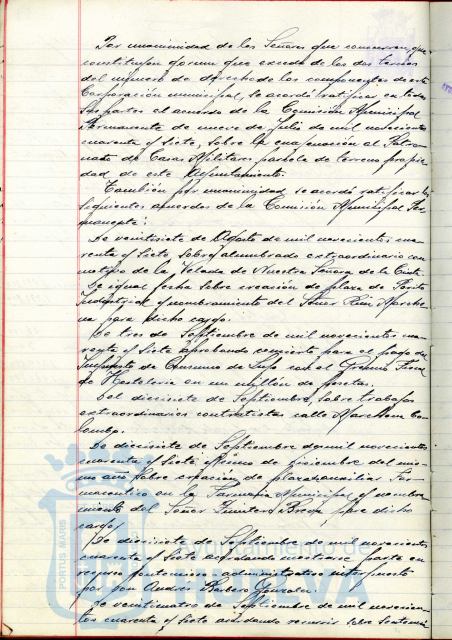 Por unanimidad de los Señores que concurren, que
constituyen quorum que excede de las dos terceras
del número de derecho de los componentes de esta
Corporación municipal, se acordó ratificar en todas
sus partes el acuerdo de la Comisión Municipal
Permanente de nueve de Julio de mil novecientos
cuarenta y siete, sobre la enajenación al Patro-
nato de Casas Militares parcela de terreno propie-
dad de este Ayuntamiento.
También por unanimidad se acordó ratificar los
siguientes acuerdos de la Comisión Municipal Per-
manente:
De veintisiete de Agosto de mil novecientos cua-
renta y siete, sobre alumbrado extraordinario con
motivo de la Velada de Nuestra Señora de la Cinta.
De igual fecha sobre creación de plaza de Perito
Industrial y nombramiento del Señor Ruiz Marche-
na para dicho cargo.
De tres de Septiembre de mil novecientos cua-
renta y siete aprobando concierto para el pago del
Impuesto de Consumo de Lujo con el Gremio Fiscal
de Hostelería en un millón de pesetas.
Del diecisiete de Septiembre, sobre trabajos
extraordinarios contratistas calle Marchena Co-
lombo.
De diecisiete de Septiembre de mil novecientos
cuarenta y siete y de diciembre del mis-
mo año sobre creación de plaza auxiliar Far-
maceutico en la Farmacia Municipal y nombra-
miento del Señor Fuentes Breva para dicho
cargo.
De diecisiete de Septiembre de mil novecientos
cuarenta y siete acordando mostrarse parte en
recurso contencioso-administrativo interpuesto
por Don Andrés Barbero Gonzalez.
De veinticuatro de Septiembre de mil novecien-
tos cuarenta y siete acordando recurrir sobre sentencia
PORTUS MARIS
Ayuntamiento de
HUELVA